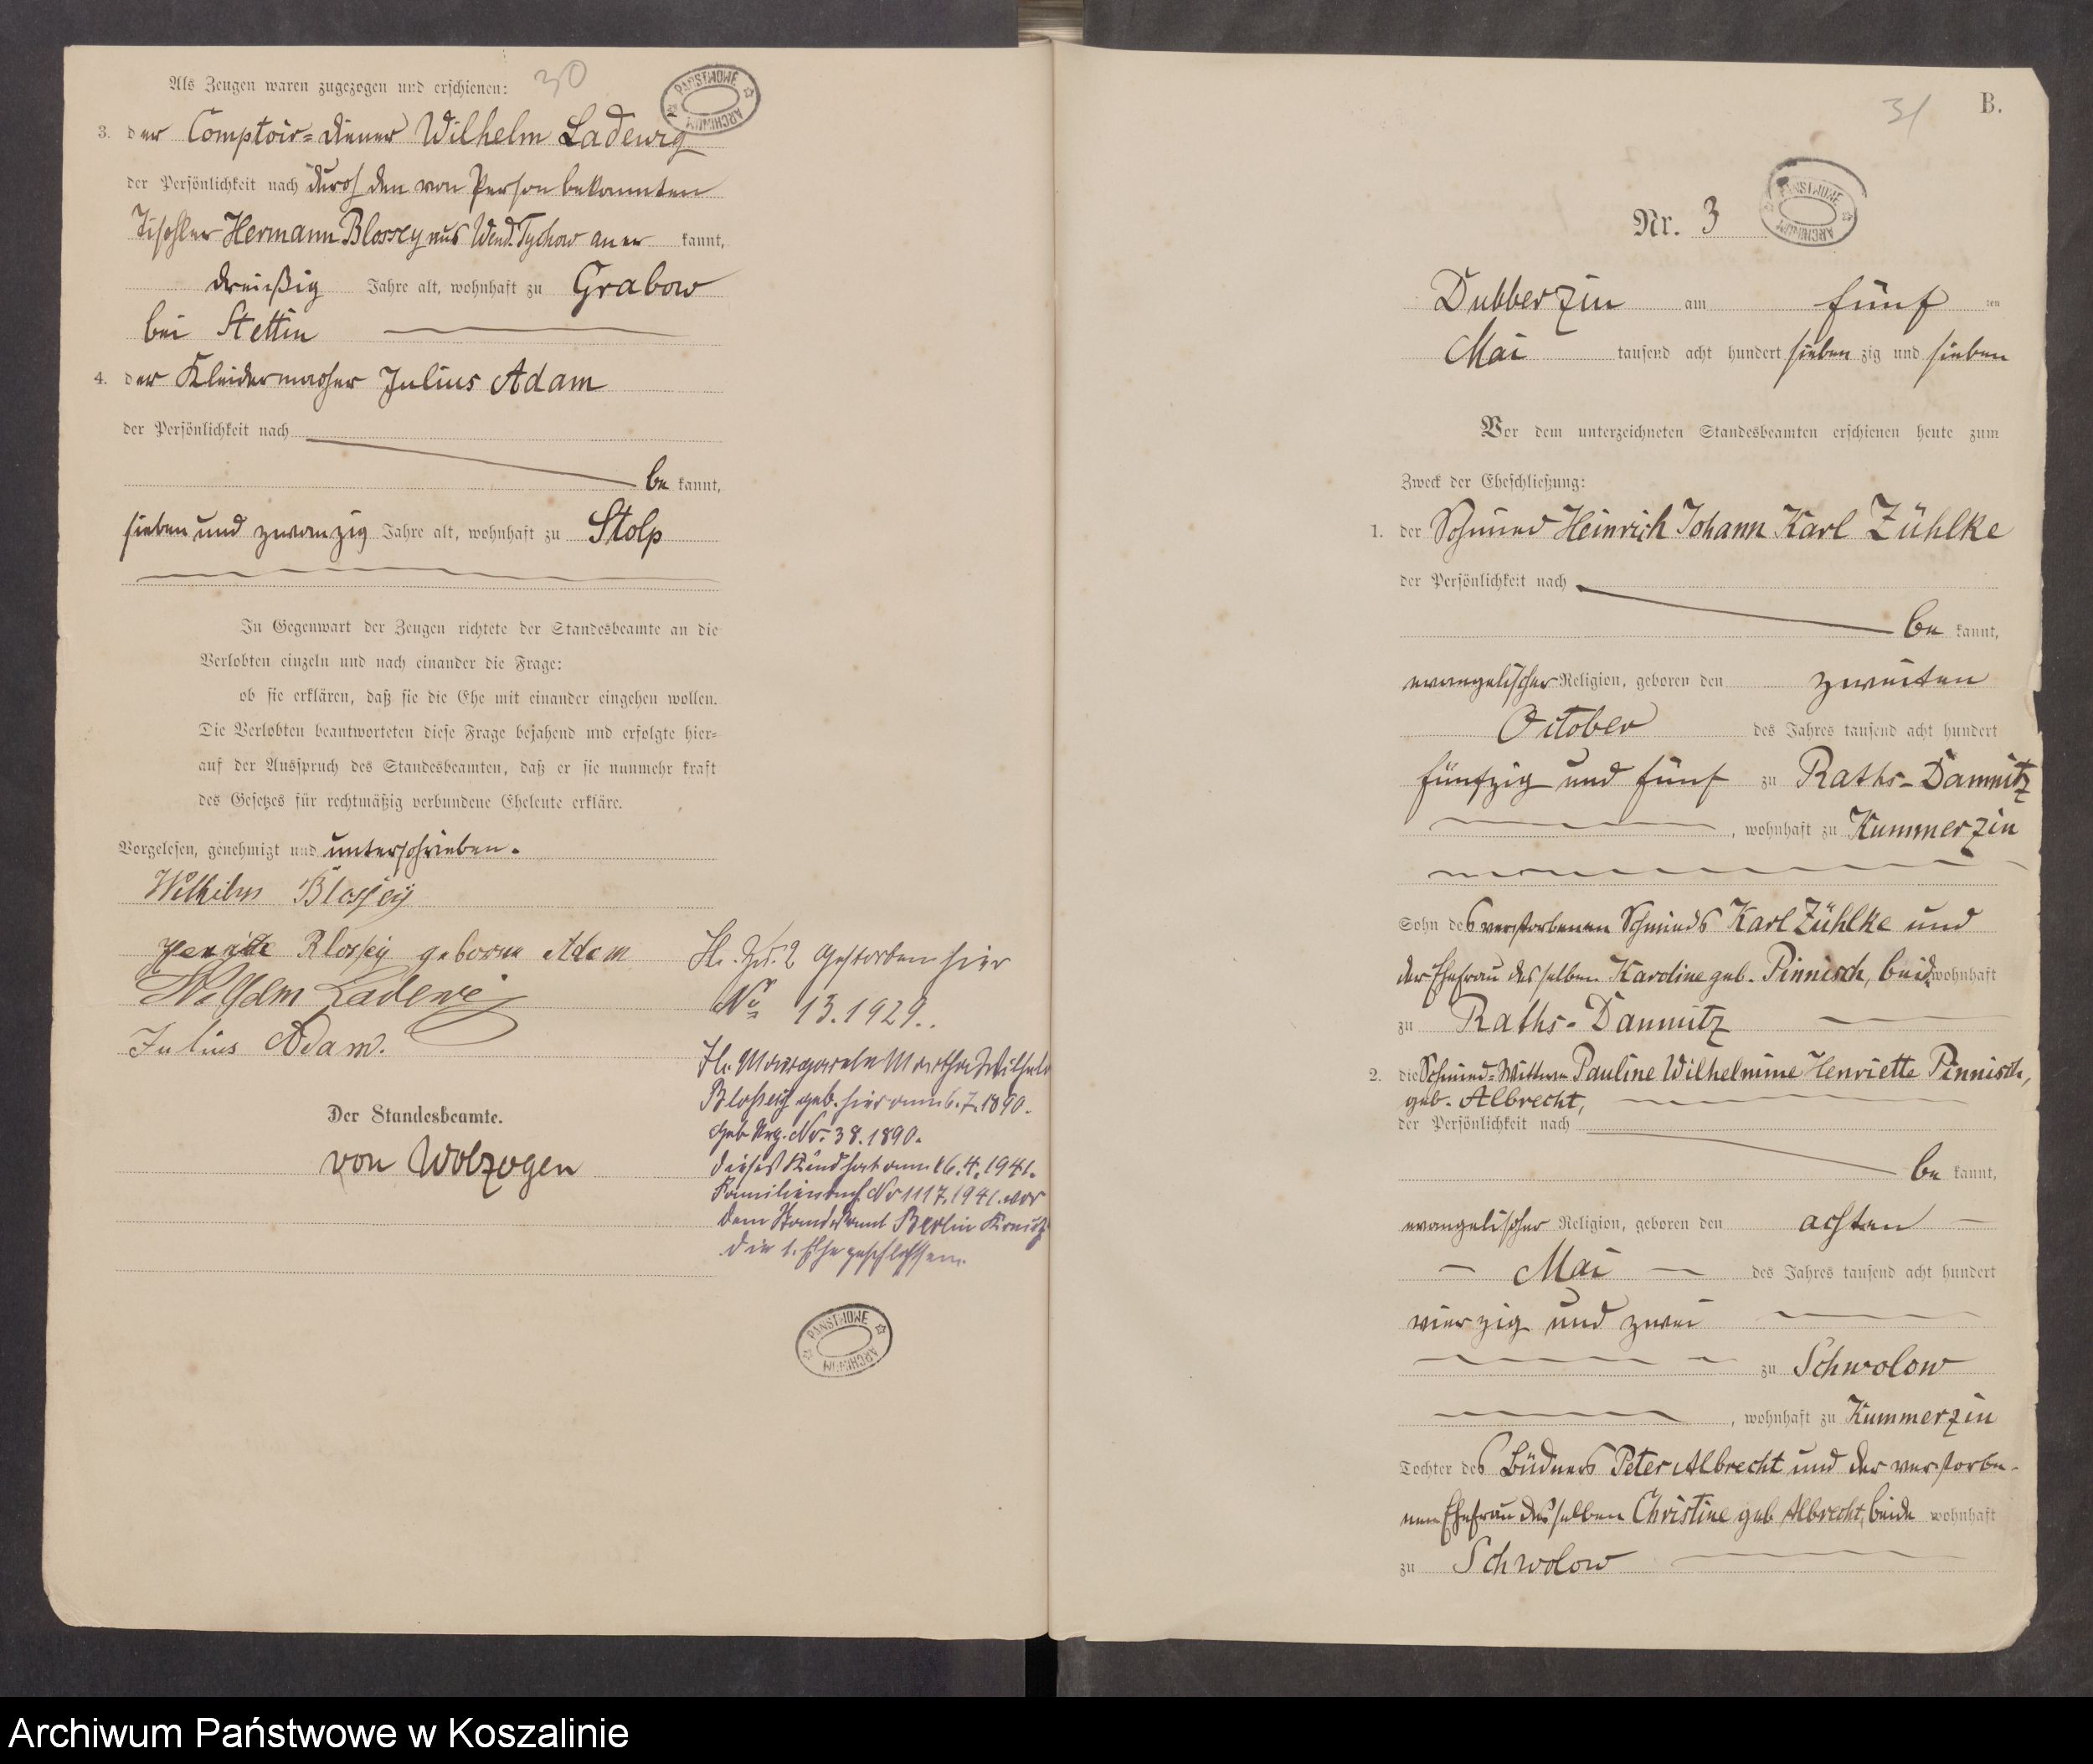 Als Zeugen waren zugezogen und erschienen:
30
PAŃSTWOWE ARCHIWUM
3. der Comptoir=diener Wilhelm Ladewig
der Persönlichkeit nach durch den von Person bekannten
Tischler Hermann Blossey aus Wend. Tychow aner kannt,
dreißig Jahre alt, wohnhaft zu Grabow
bei Stettin
4. der Kleidermacher Julius Adam
der Persönlichkeit nach
be kannt,
sieben und zwanzig Jahre alt, wohnhaft zu Stolp
In Gegenwart der Zeugen richtete der Standesbeamte an die
Verlobten einzeln und nach einander die Frage:
ob sie erklären, daß sie die Ehe mit einander eingehen wollen.
Die Verlobten beantworteten diese Frage bejahend und erfolgte hier=
auf der Ausspruch des Standesbeamten, daß er sie nunmehr kraft
des Gesetzes für rechtmäßig verbundene Eheleute erkläre.
Vorgelesen, genehmigt und unterschrieben.
Wilhelm Blossey
Blossey geborne Adam
Wilhelm Ladewig
Julius Adam.
Der Standesbeamte.
von Wolzogen
2 gestorben hier
No 13.1929.
Margarete Martha
Blossey geb. hier am 6.7.1890.
Geb Reg. Nr. 38.1890.
dieses Kind hat am 16.4.1941.
Familienbuch Nr 1117.1941. vor
dem Standesamt Berlin
die 1. Ehe geschlossen.
PAŃSTWOWE ARCHIWUM
31
B.
PAŃSTWOWE ARCHIWUM
Nr. 3
Dubberzin am fünf ten
Mai tausend acht hundert sieben zig und sieben
Vor dem unterzeichneten Standesbeamten erschienen heute zum
Zweck der Eheschließung:
1. der Schmied Heinrich Johann Karl Zühlke
der Persönlichkeit nach
be kannt,
evangelischer Religion, geboren den zweiten
October des Jahres tausend acht hundert
fünfzig und fünf zu Raths-Damnitz
, wohnhaft zu Kummerzin
Sohn des verstorbenen Schmieds Karl Zühlke und
der Ehefrau desselben Karoline geb. Pinnisch, beide wohnhaft
zu Raths-Damnitz
2. die Schmied=Wittwe Pauline Wilhelmine Henriette Pinnisch,
geb. Albrecht,
der Persönlichkeit nach
be kannt,
evangelischer Religion, geboren den achten
Mai des Jahres tausend acht hundert
vierzig und zwei
zu Schwolow
, wohnhaft zu Kummerzin
Tochter des Büdners Peter Albrecht und der verstorbe-
nen Ehefrau desselben Christine geb Albrecht, beide wohnhaft
zu Schwolow
Archiwum Państwowe w Koszalinie